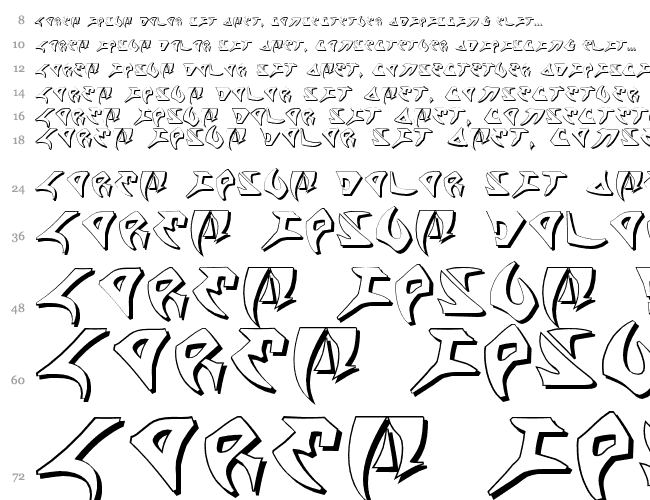 8 LOREM IPSUM DOLOR SIT AMET, CONSECTETUER ADIPISCING ELIT...
10 LOREM IPSUM DOLOR SIT AMET, CONSECTETUER ADIPISCING ELIT...
12 LOREM IPSUM DOLOR SIT AMET, CONSECTETUER ADIPISCI
14 LOREM IPSUM DOLOR SIT AMET, CONSECTETUER
16 LOREM IPSUM DOLOR SIT AMET, CONSECTET
18 LOREM IPSUM DOLOR SIT AMET, CONSE
24 LOREM IPSUM DOLOR SIT AM
36 LOREM IPSUM DOLO
48 LOREM IPSUM
60 LOREM IPSU
72 LOREM IP